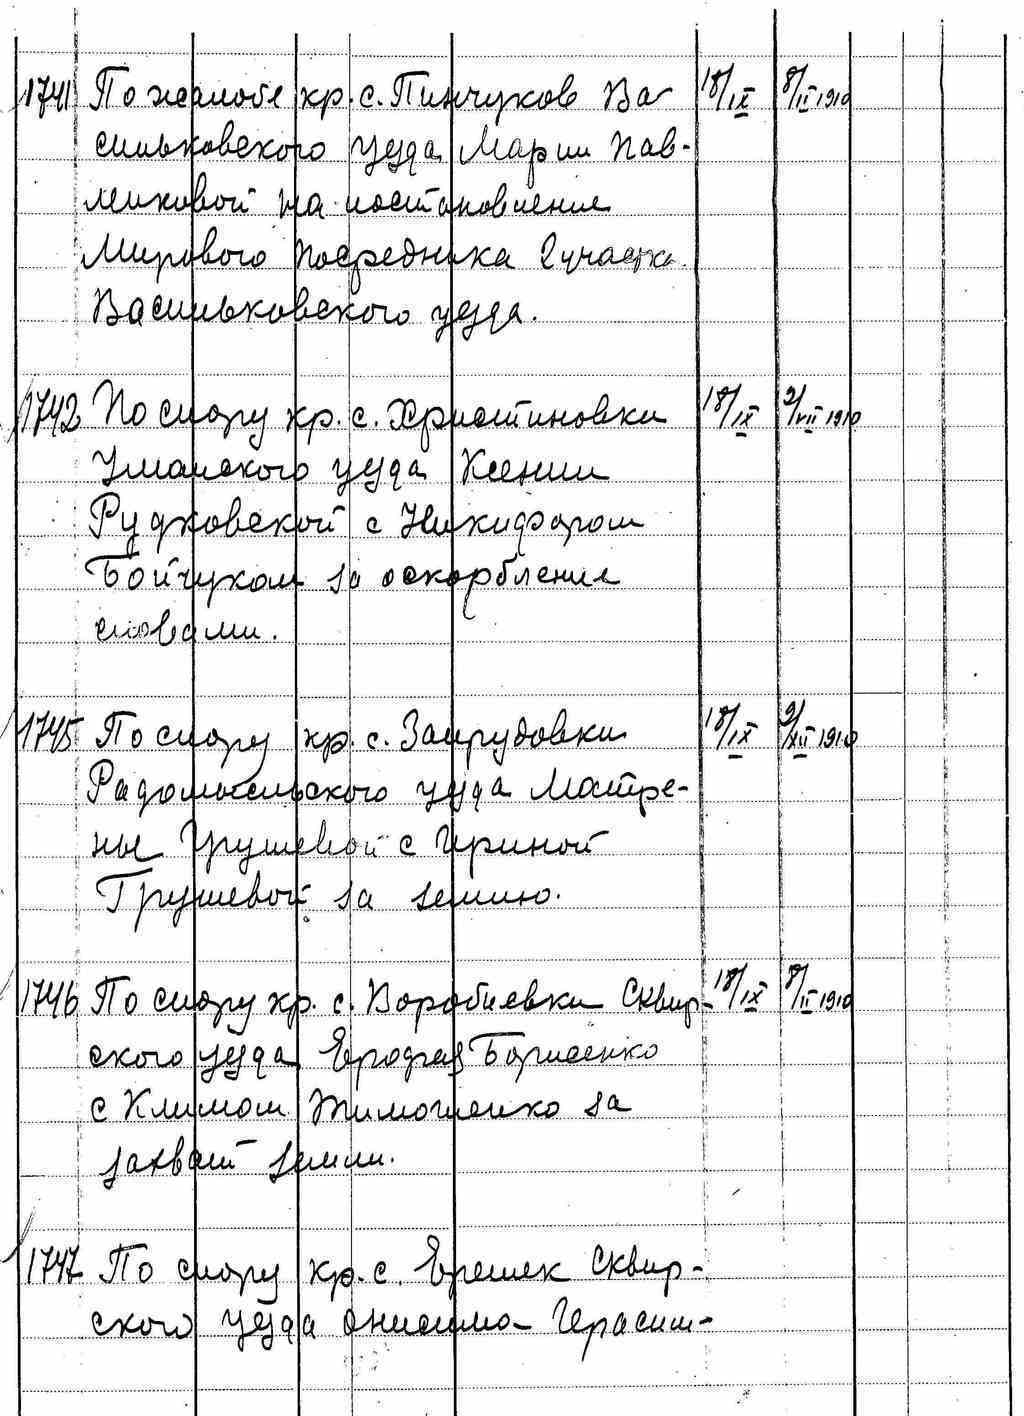 1741 По жалобе кр. с. Пинчуков Ва- 18/IX 8/II 1910
сильковского уезда Марии Пав-
ликовой на постановление
Мирового Посредника 2 участка
Васильковского уезда.
1742 По спору кр. с. Христиновки 18/IX 2/VII 1910
Уманского уезда Ксении
Рудковской с Никифором
Бойчуком за оскорбление
словами.
1745 По спору кр. с. Заирудовки 18/IX 9/XII 1910
Радомысльского уезда Мотре-
ны Грушевой с Ириной
Грушевой за землю.
1746 По спору кр. с. Воробиевки Сквир- 18/IX 8/II 1910
ского уезда Борисенко
с Климом Тимошенко за
захват земли.
1747 По спору кр. с. Ерешек Сквир-
ского уезда Онисима Герасим-